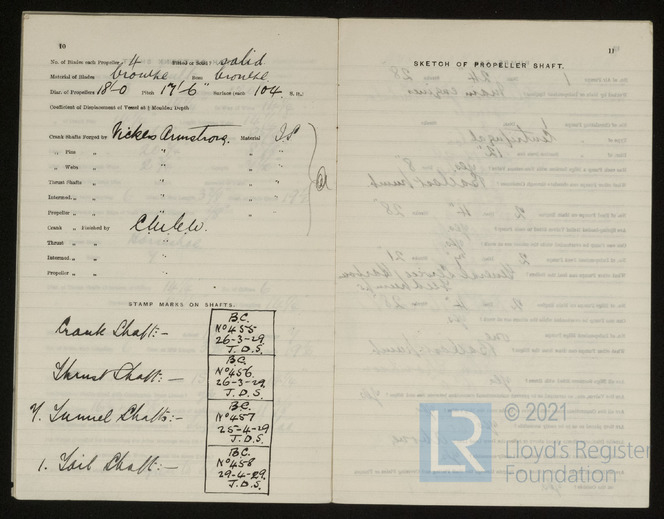 10
No. of Blades each Propeller 4 Fitted or Solid? Solid
Material of Blades bronze Boss bronze
Diar. of Propellers 18'-0 Pitch 17'-6" Surface (each 104 S. ft.)
Coefficient of Displacement of Vessel at ⅔ Moulded Depth
Crank Shafts Forged by Vickers Armstrong. Material I.S.
„ Pins „ „
„ Webs „ „
Thrust Shafts „ „
Intermed. „ „ „
Propeller „ „ „
Crank „ Finished by
Thrust „ „
Intermed. „ „
Propeller „ „
STAMP MARKS ON SHAFTS.
Crank Shaft:- B.C.
No 455
26-3-29
J.D.S.
Thrust Shaft:- B.C.
No 456
26-3-29.
J.D.S.
7. Tunnel Shafts:- B.C.
No 457
25-4-29
J.D.S.
1. Tail Shaft:- B.C.
No 458
29-4-29.
J.D.S.
11
SKETCH OF PROPELLER SHAFT.
LR
© 2021
Lloyd's Register
Foundation